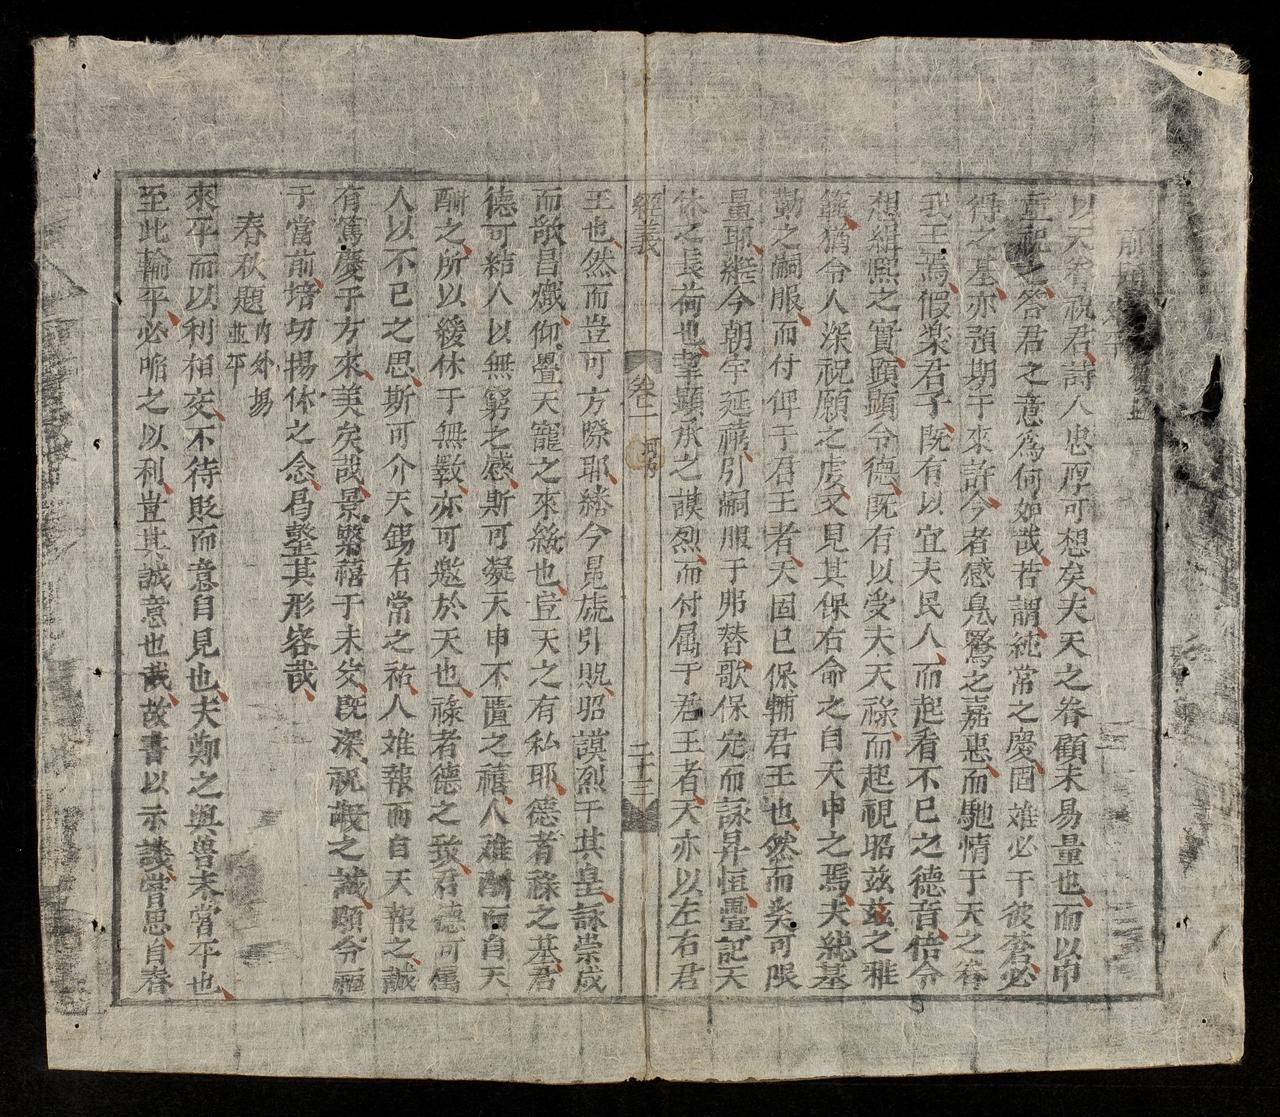 前題
以天眷祝君詩人忠厚可想矣夫天之眷顧未易量也而以申
重祝之答君之意為何如哉若謂純常之慶固难必于彼蒼必
得之基亦預期于來許今者感鳧鷖之嘉惠而馳情于天之眷
我王焉假楽君子既有以宜夫民人而起看不已之德音倍令
想緝熙之實顕顕令德既有以受夫天祿而起視昭兹兹之雅
籲猶令人深祝愿之虔又見其保右命之自天申之焉夫緫基
勤之嗣服而付俾于君王者天固已保輔君王也然而奚可限
量耶継今朝宇延禧引嗣服于弗替歌保定而詠昇恒疊記天
休之長荷也丕顕承之謨烈而付属于君王者天亦以左右君
經義 卷二 二十三
王也然而豈可方際耶継今昆旒引貺昭謨烈于其皇詠崇成
而歌昌熾仰疊天寵之來紘也豈天之有私耶德者祿之基君
德可結人以無窮之感斯可凝天申不匱之禧人难酬而自天
酬之所以緩休于無斁亦可邀於天也祿者德之致君德可属
人以不已之思斯可介天錫右常之祐人难報而自天報之誠
有篤慶于方來美矣哉景緊禧于未艾既深祝嘏之誠顕令
于當前培切揚休之念曷罄其形容哉
春秋題内外場並平
來平而以利相交不待貶而意自見也夫鄭之與魯未嘗平也
至此輸平必啗之以利豈其誠意也哉故書以示譏嘗思自春